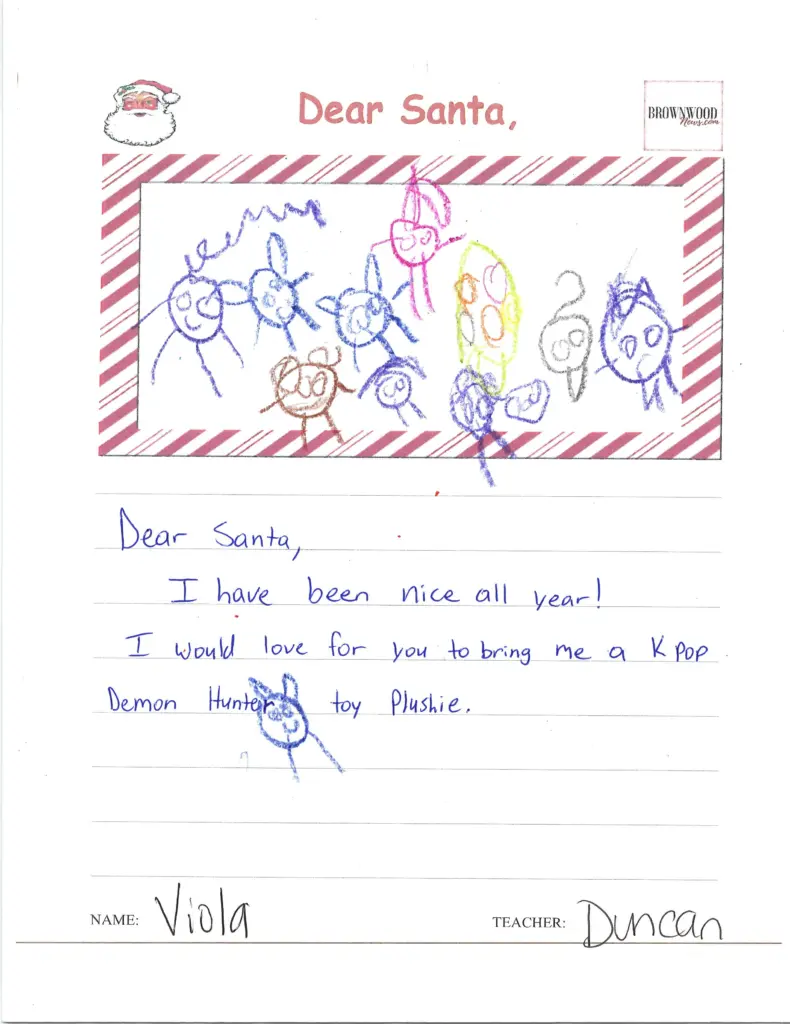 Dear Santa,
BROWNWOOD
News.com
Dear Santa,
I have been nice all year!
I would love for you to bring me a K pop
Demon Hunter toy Plushie.
NAME: Viola
TEACHER: Duncan